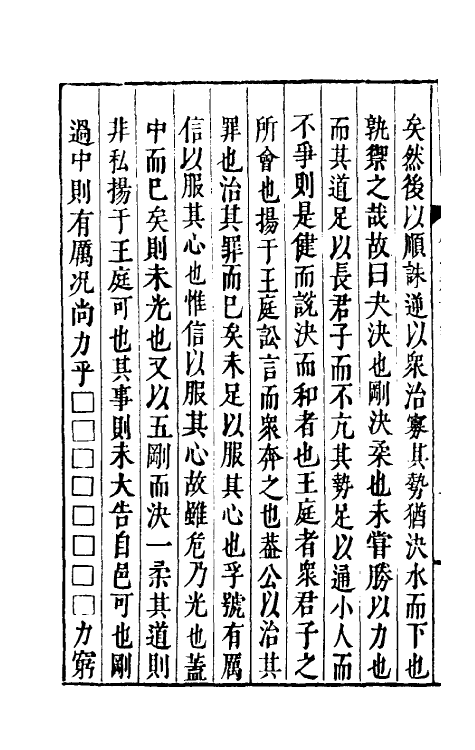 矣然後以順誅逆以衆治寡其勢猶決水而下也
孰禦之哉故曰夬決也剛決柔也未甞勝以力也
而其道足以長君子而不亢其勢足以通小人而
不爭則是健而說決而和者也王庭者衆君子之
所會也揚于王庭訟言而衆弃之也葢公以治其
罪也治其罪而已矣未足以服其心也孚號有厲
信以服其心也惟信以服其心故雖危乃光也蓋
中而已矣則未光也又以五剛而決一柔其道則
非私揚于王庭可也其事則未大告自邑可也剛
過中則有厲况尚力乎□□□□□□□□力窮